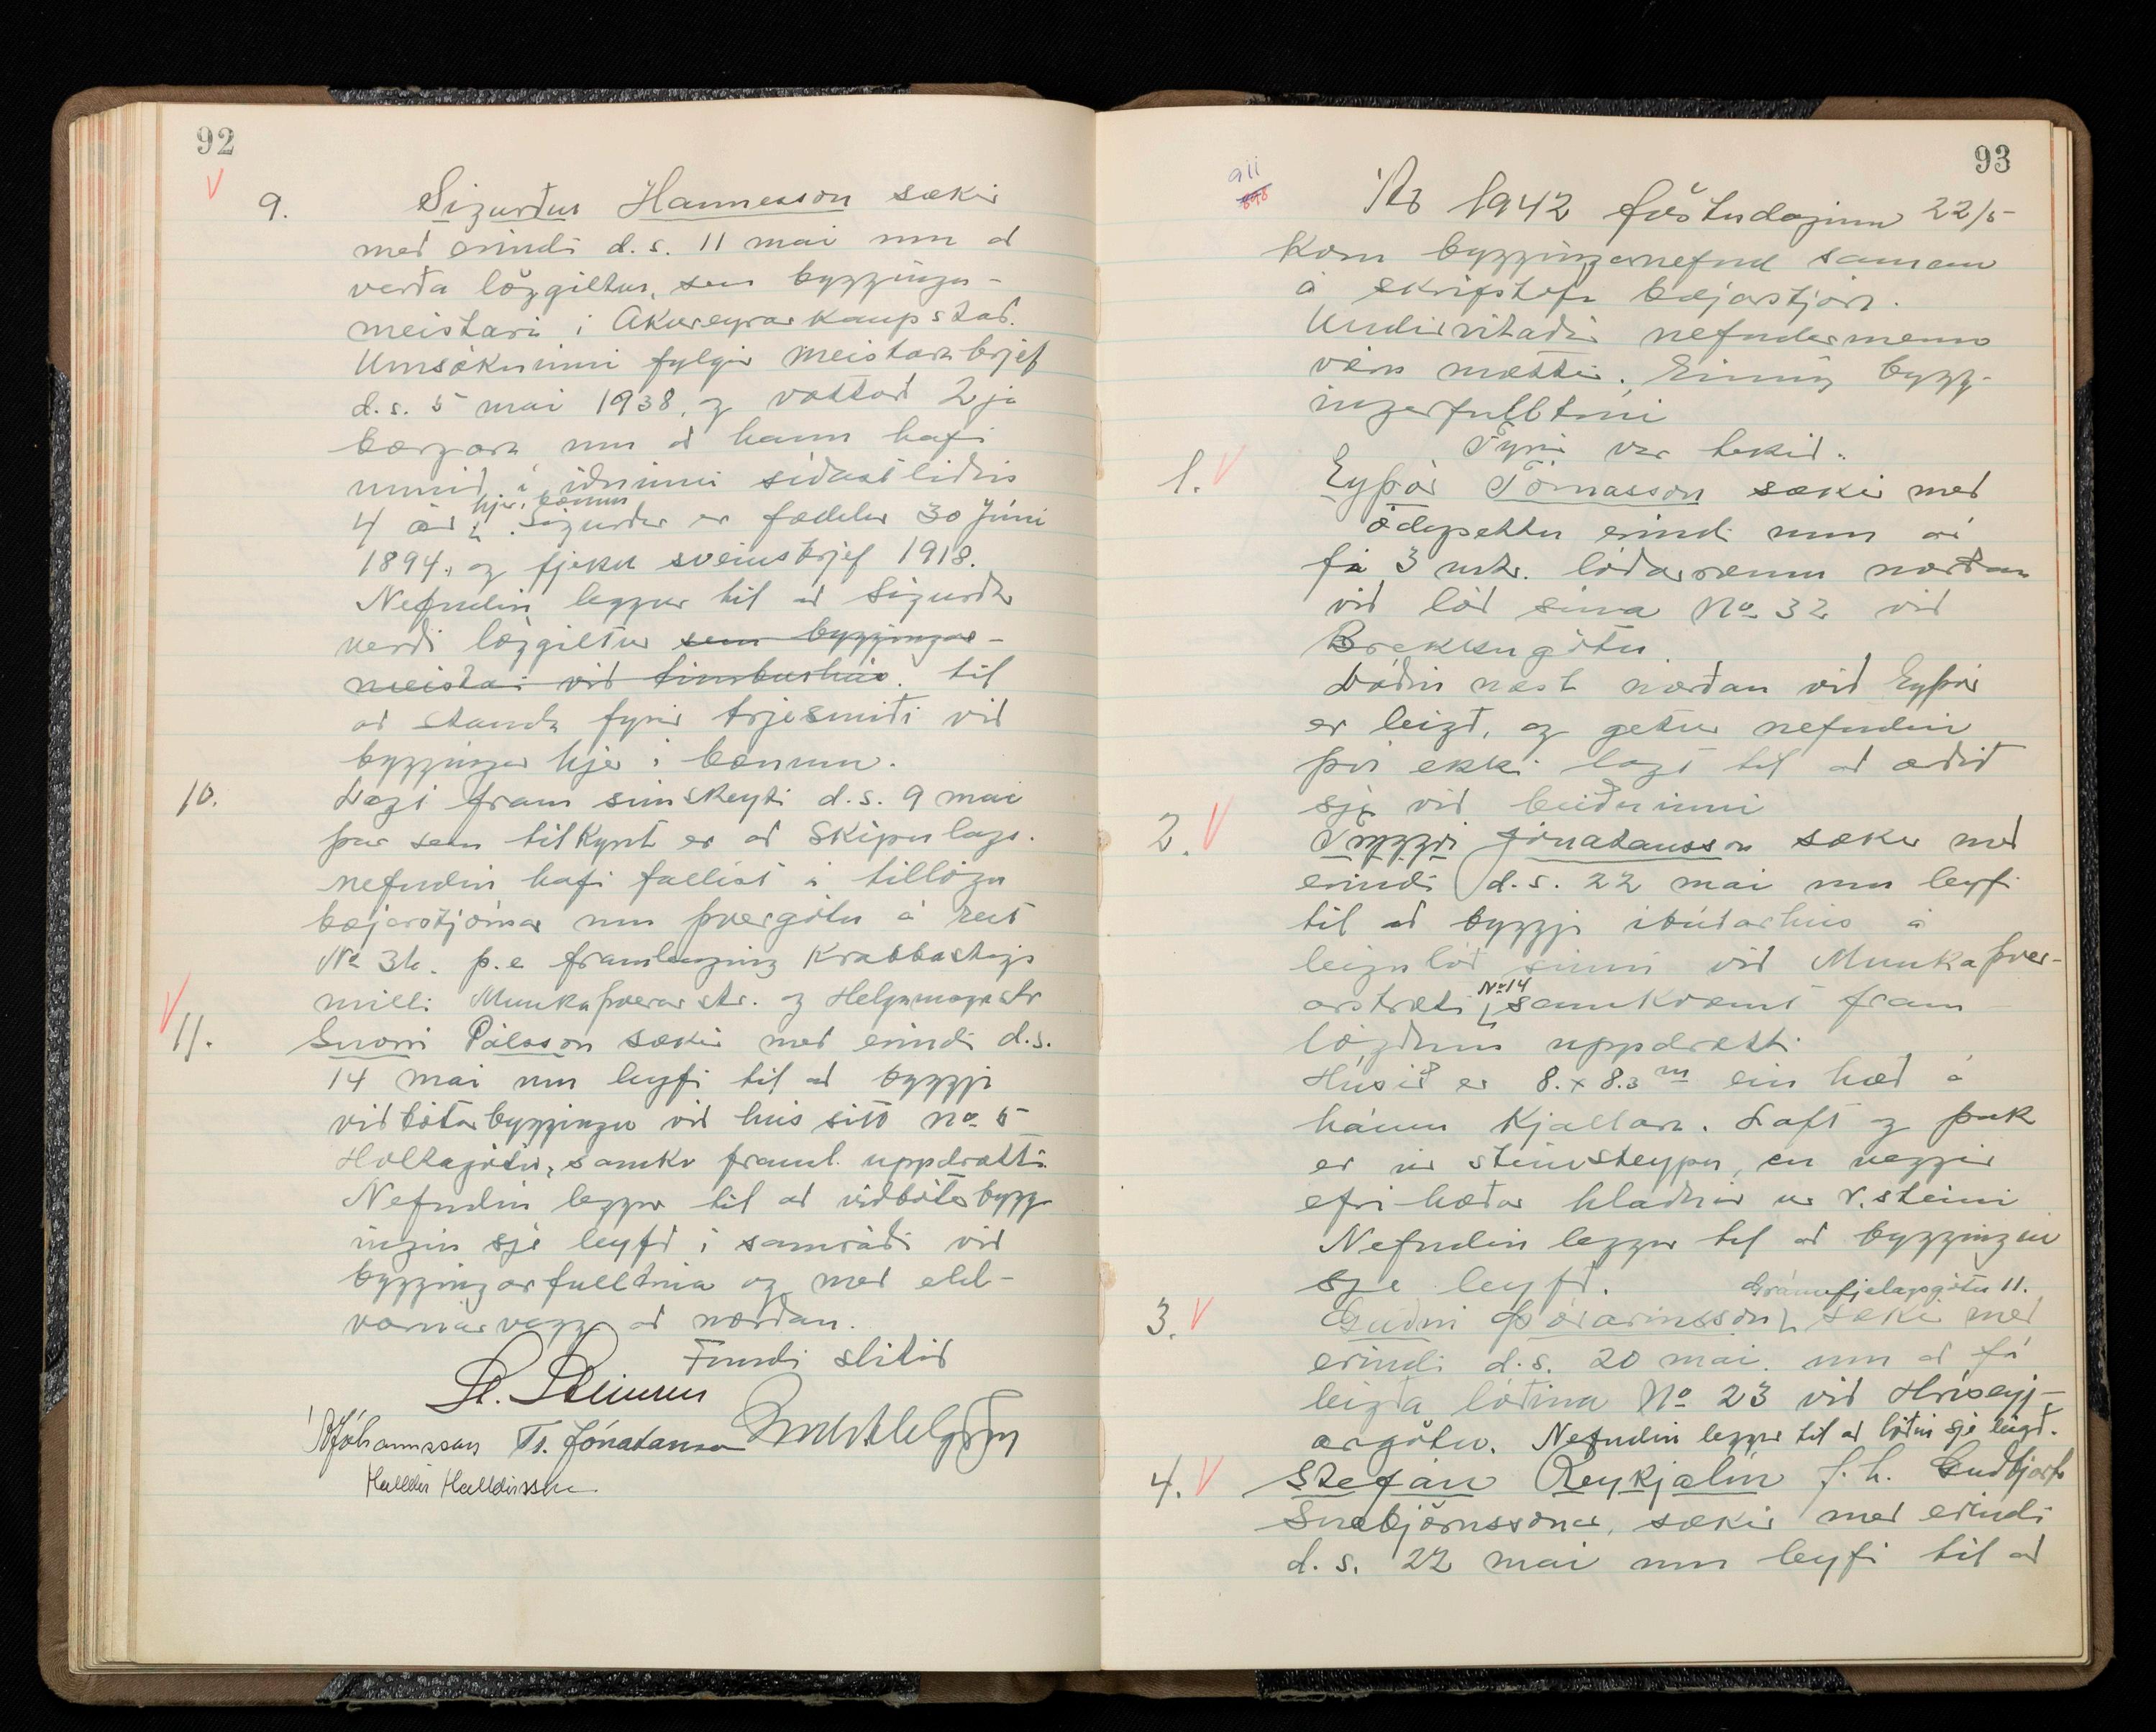 92
9. Sigurður Hannesson sækir
með erindi d.s. 11 mai um að
verða löggiltur, sem bygginga-
meistari í Akureyrarkaupstað.
Umsókninni fylgir meistarabrjef
d.s. 5 mai 1938, og vottorð 2ja
borgara um að hann hafi
unnið í iðninni síðastliðin
4 ár hjer í bænum. Sigurður er fæddur 30 Júní
1894, og fjekk sveinsbrjef 1918.
Nefndin leggur til að Sigurður
verði löggiltur sem bygginga-
meistari við timburhús. til
að standa fyrir trjesmíði við
byggingar hjer í bænum.
10. Lagt fram símskeyti d.s. 9 mai
þar sem tilkynt er að Skipulags-
nefndin hafi fallist á tillögu
bæjarstjórnar um þvergötu á reit
No 34. þ.e framlenging Krabbastígs
milli Munkaþverárstr. og Helgamagrastr
11. Snorri Pálsson sækir með erindi d.s.
14 mai um leyfi til að byggja
viðbótarbyggingu við hús sitt no 5
Holtagötu, samkv framl. uppdrætti.
Nefndin leggur til að viðbótarbygg-
ingin sje leyfð í samráði við
byggingarfulltrúa og með eld-
varnarvegg að norðan.
Fundi slitið
St. Steinsen
Jóhannsson Tr. Jónatansson
Halldór Halldórsson
93
911
898
Ár 1942 föstudaginn 22/5
kom byggingarnefnd saman
á skrifstofu bæjarstjóra.
Undirritaðir nefndarmenn
voru mættir. Einnig bygg-
ingarfulltrúi
Fyrir var tekið.
1. Eyþór Tómasson sækir með
ódagsettu erindi um að
fá 3 mtr. lóðarræmu norðan
við lóð sína No 32 við
Brekkugötu.
Lóðin næst norðan við Eyþór
er leigð, og getur nefndin
því ekki lagt til að orðið
sje við beiðninni
2. Tryggvi Jónatansson sækir með
erindi d.s. 22 mai um leyfi
til að byggja íbúðarhús á
leigulóð sinni við Munkaþver-
árstræti No 14 samkvæmt fram
lögðum uppdrætti.
Húsið er 8.8 x 8.3 m ein hæð á
háum kjallara. Loft og þak
er úr steinsteypu, en veggir
efri hæðar hlaðnir úr r.steini
Nefndin leggur til að byggingin
sje leyfð.
3. Guðni Þórarinsson, Gránufjelagsgötu 11. sækir með
erindi d.s. 20 mai. um að fá
leigða lóðina No 23 við Hríseyj-
argötu. Nefndin leggur til að lóðin sje leigð.
4. Stefán Reykjalín f.h. Guðbjarts
Snæbjörnssonar, sækir með erindi
d.s. 22 mai um leyfi til að